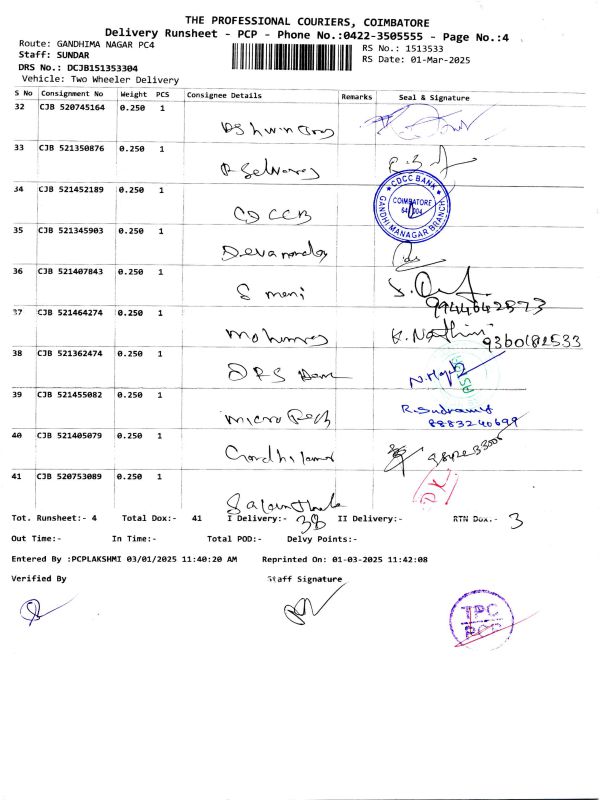 THE PROFESSIONAL COURIERS, COIMBATORE
Delivery Runsheet - PCP - Phone No.:0422-3505555 - Page No.:4
Route: GANDHIMA NAGAR PC4
RS No.: 1513533
Staff: SUNDAR
RS Date: 01-Mar-2025
DRS No.: DCJB151353304
Vehicle: Two Wheeler Delivery
S No Consignment No Weight PCS Consignee Details Remarks Seal & Signature
32 CJB 520745164 0.250 1
33 CJB 521350876 0.250 1
R Selvaraj
34 CJB 521452189 0.250 1
CDCCB
CDCC BANK
COIMBATORE
GANDHI MANAGAR BRANCH
35 CJB 521345903 0.250 1
36 CJB 521407843 0.250 1
S meni
9944642573
37 CJB 521464274 0.250 1
K. Nathini
9360182533
38 CJB 521362474 0.250 1
39 CJB 521455082 0.250 1
micro Tech
8883240699
40 CJB 521405079 0.250 1
41 CJB 520753089 0.250 1
Tot. Runsheet:- 4 Total Dox:- 41 I Delivery:- 38 II Delivery:- RTN Dox.- 3
Out Time:- In Time:- Total POD:- Delvy Points:-
Entered By :PCPLAKSHMI 03/01/2025 11:40:20 AM Reprinted On: 01-03-2025 11:42:08
Verified By Staff Signature
TPC
PCP